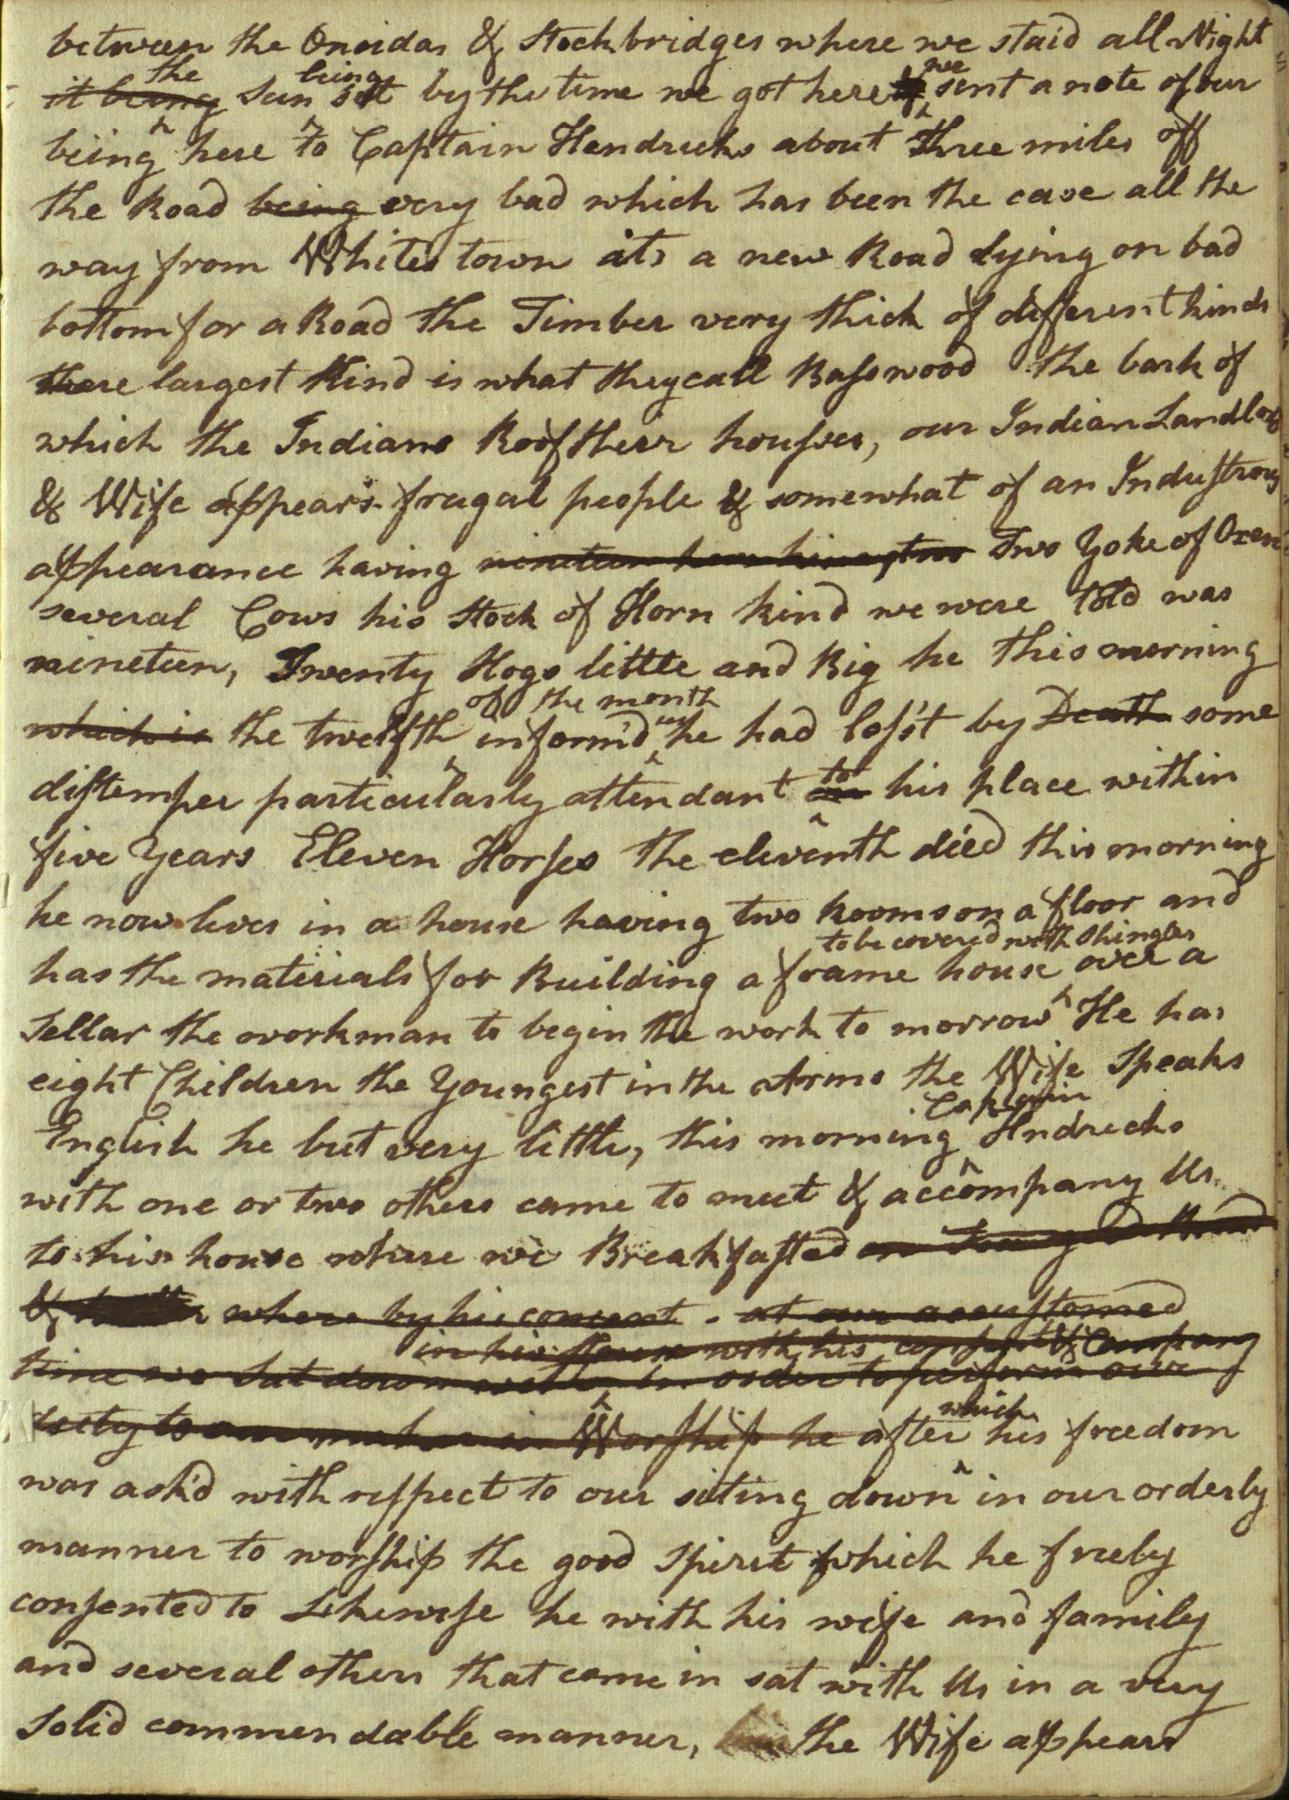 between the Oneidas & Stockbridges where we staid all Night
the being we
it being Sun set by the time we got here sent a note of our
being here to Captain Hendricks about three miles off
the Road being very bad which has been the case all the
way from Whites town its a new Road lying on bad
bottom for a Road the Timber very thick of different kinds
there largest Kind is what they call Basswood the bark of
which the Indians Roof their houses, our Indian Landlord
& Wife appears frugal people & somewhat of an Industrous
appearance having nineteen two Two Yoke of Oxen
several Cows his Stock of Horn kind we were told was
nineteen, Twenty Hogs little and Big he this morning
of the month us
which is the twelfth inform'd he had loss't by Death some
to
distemper particularly attendant on his place within
five Years Eleven Horses the eleventh died this morning
he now lives in a house having two Rooms on a floor and
to be covered with Shingles
has the materials for Building a frame house over a
Sellar the workman to begin the work to morrow He has
eight Children the Youngest in the Arms the Wife Speaks
Captain
English he but very little, this morning Hndricks
with one or two others came to meet & accompany Us
to his house where we Breakfasted on
& where by his concent at our accustomed
in his House with his consent & Company
time we Sat down in order to perform our
which
duty to our maker in Worship he after his freedom
was ask'd with respect to our siting down in our orderly
manner to worship the good Spirit which he freely
consented to Likewise he with his wife and family
and several others that came in sat with Us in a very
Solid commendable manner, the Wife appears